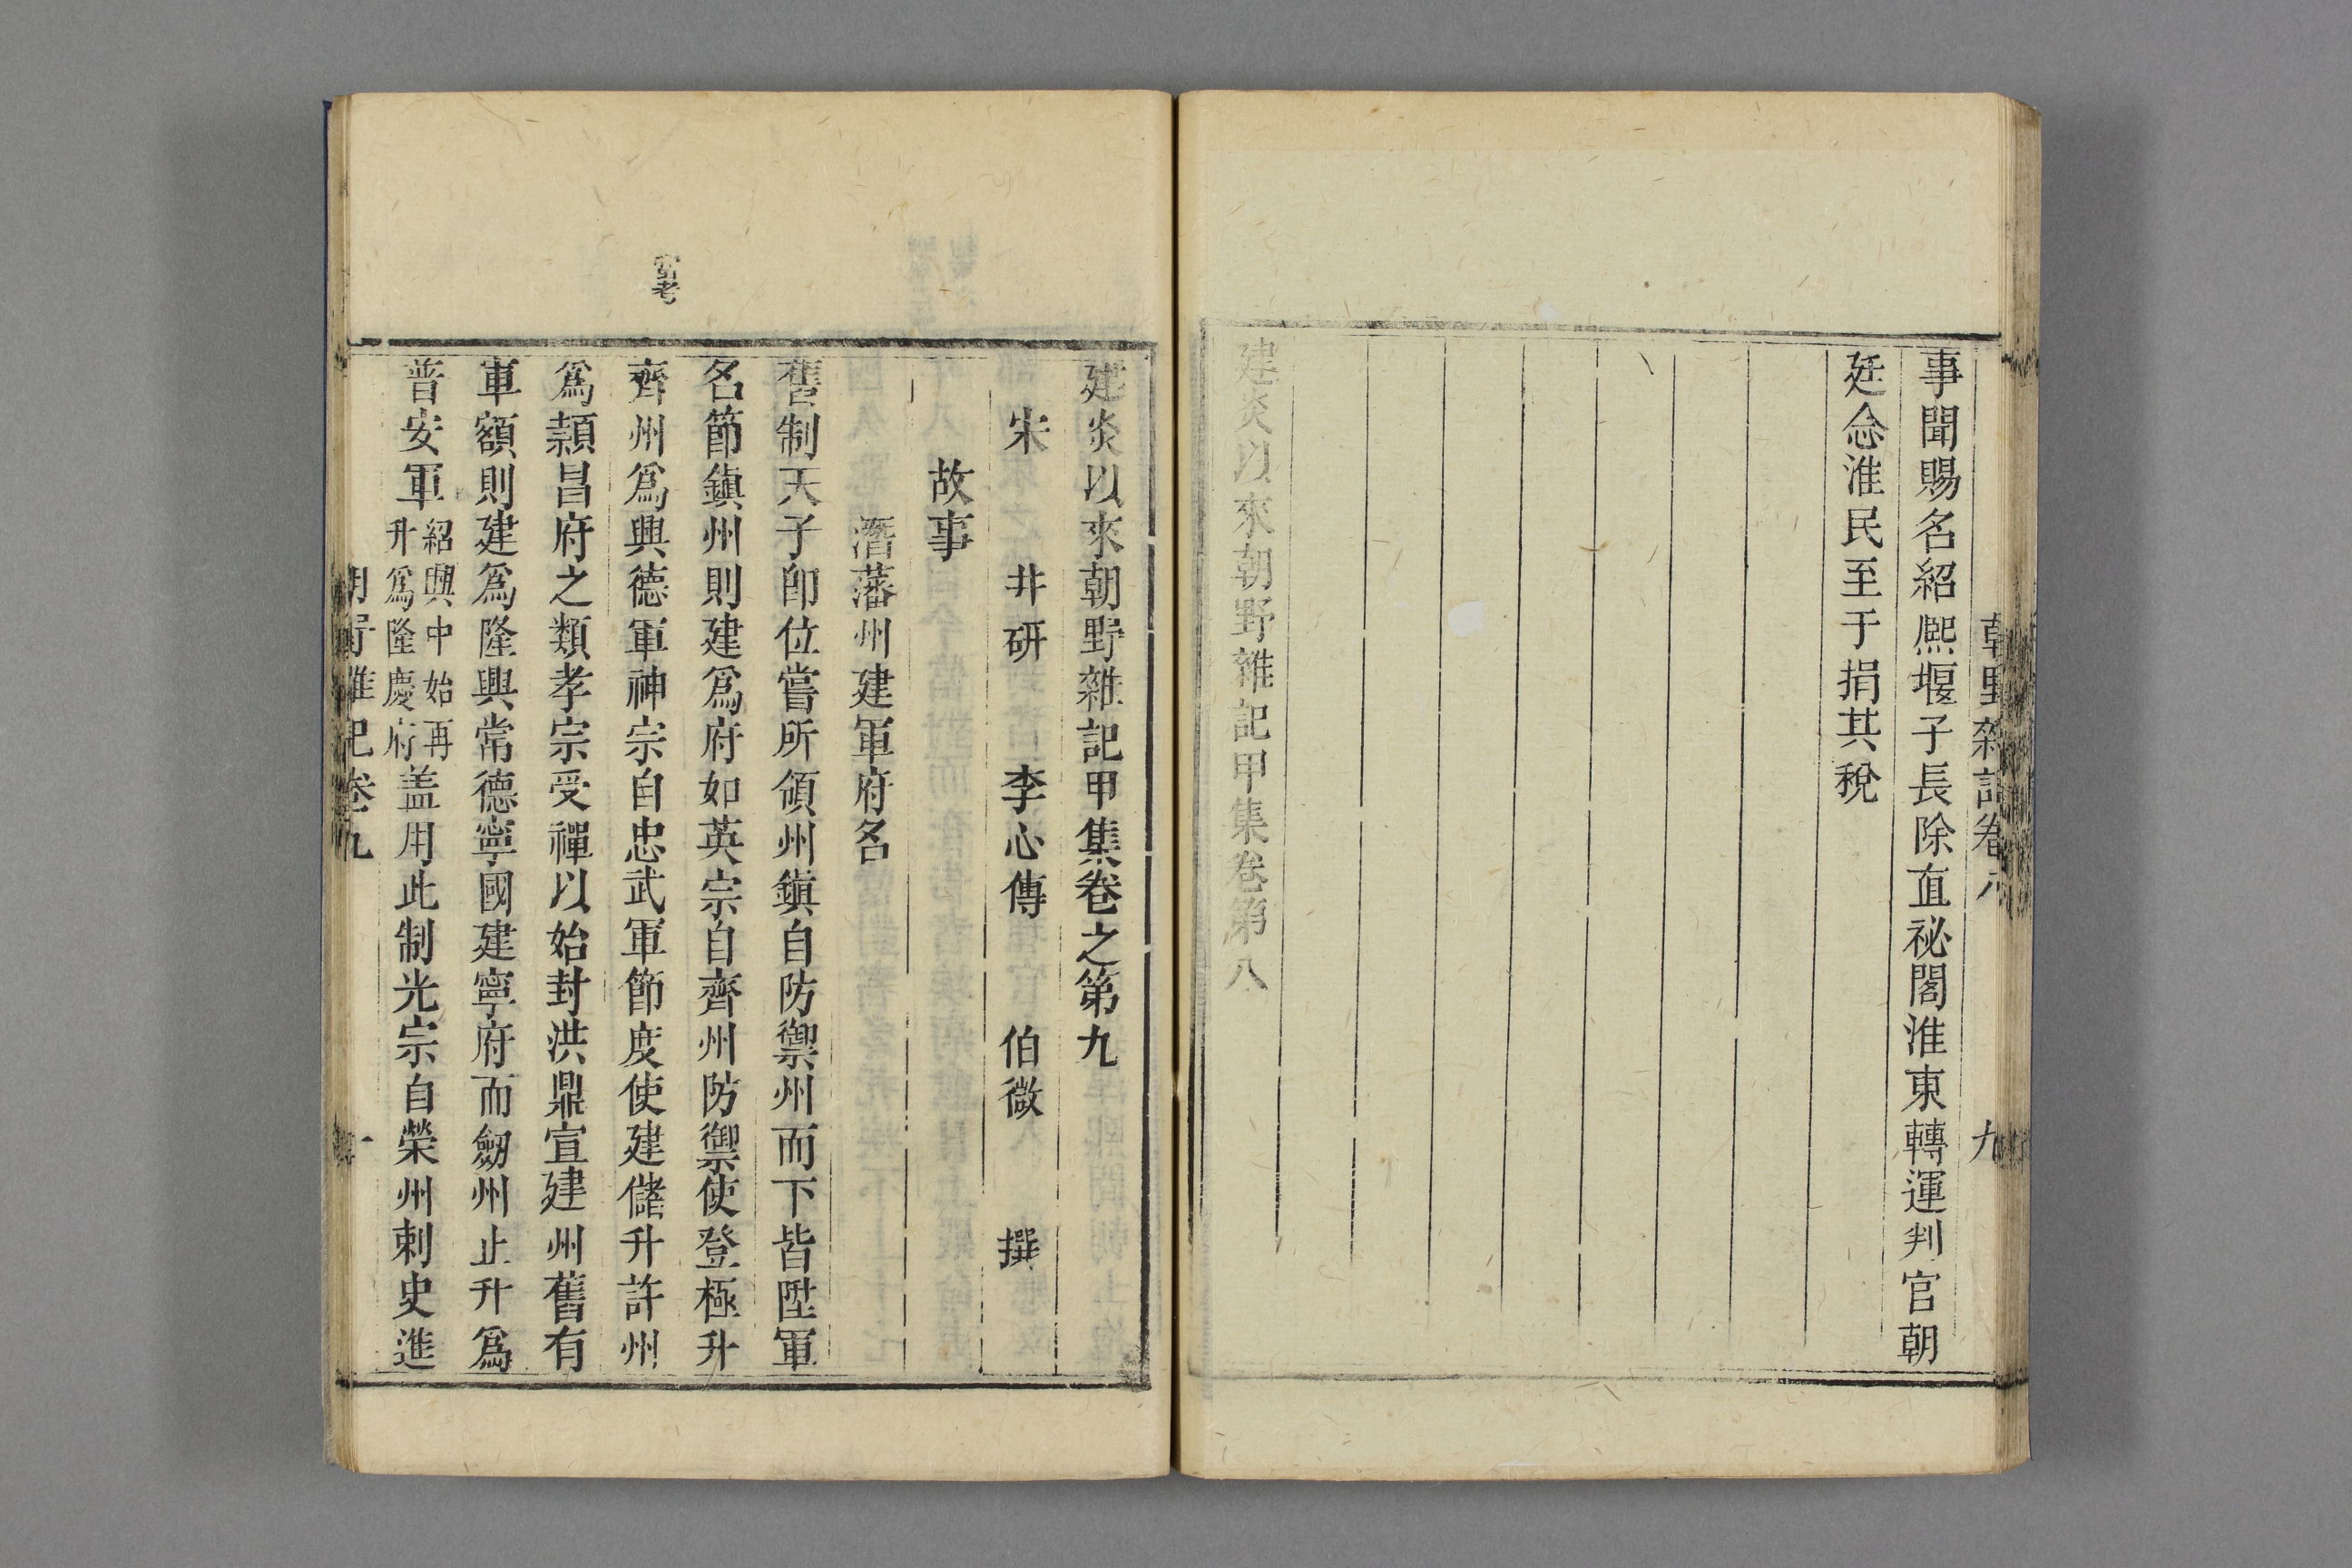 朝野雜記卷八
九
事聞賜名紹熙堰子長除直祕閣淮東轉運判官朝
廷念淮民至于捐其稅
建炎以來朝野雜記甲集卷第八
建炎以來朝野雜記甲集卷之第九
宋 井研 李心傳 伯微 撰
故事
潛藩州建軍府名
舊制天子卽位嘗所領州鎮自防禦州而下皆陞軍
名節鎮州則建爲府如英宗自齊州防禦使登極升
當考
齊州爲興德軍神宗自忠武軍節度使建儲升許州
爲頴昌府之類孝宗受禪以始封洪鼎宣建州舊有
軍額則建爲隆興常德寧國建寧府而劔州止升爲
普安軍紹興中始再升爲隆慶府盖用此制光宗自榮州刺史進
朝野雜記卷九
一